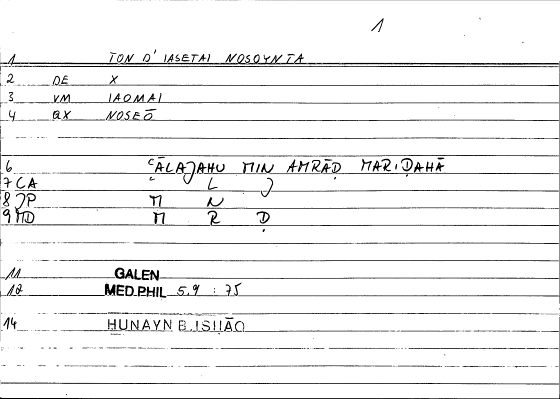 1
1 TON D' IASETAI NOSOYNTA
2 DE X
3 VM IAOMAI
4 QX NOSEŌ
6 ʿĀLAJAHU MIN AMRĀḌ MARIḌAHĀ
7 CA ʿ L J
8 JP M N
9 MD M R Ḍ
11 GALEN
12 MED.PHIL 5,9 : 75
14 HUNAYN B.ISḤĀQ